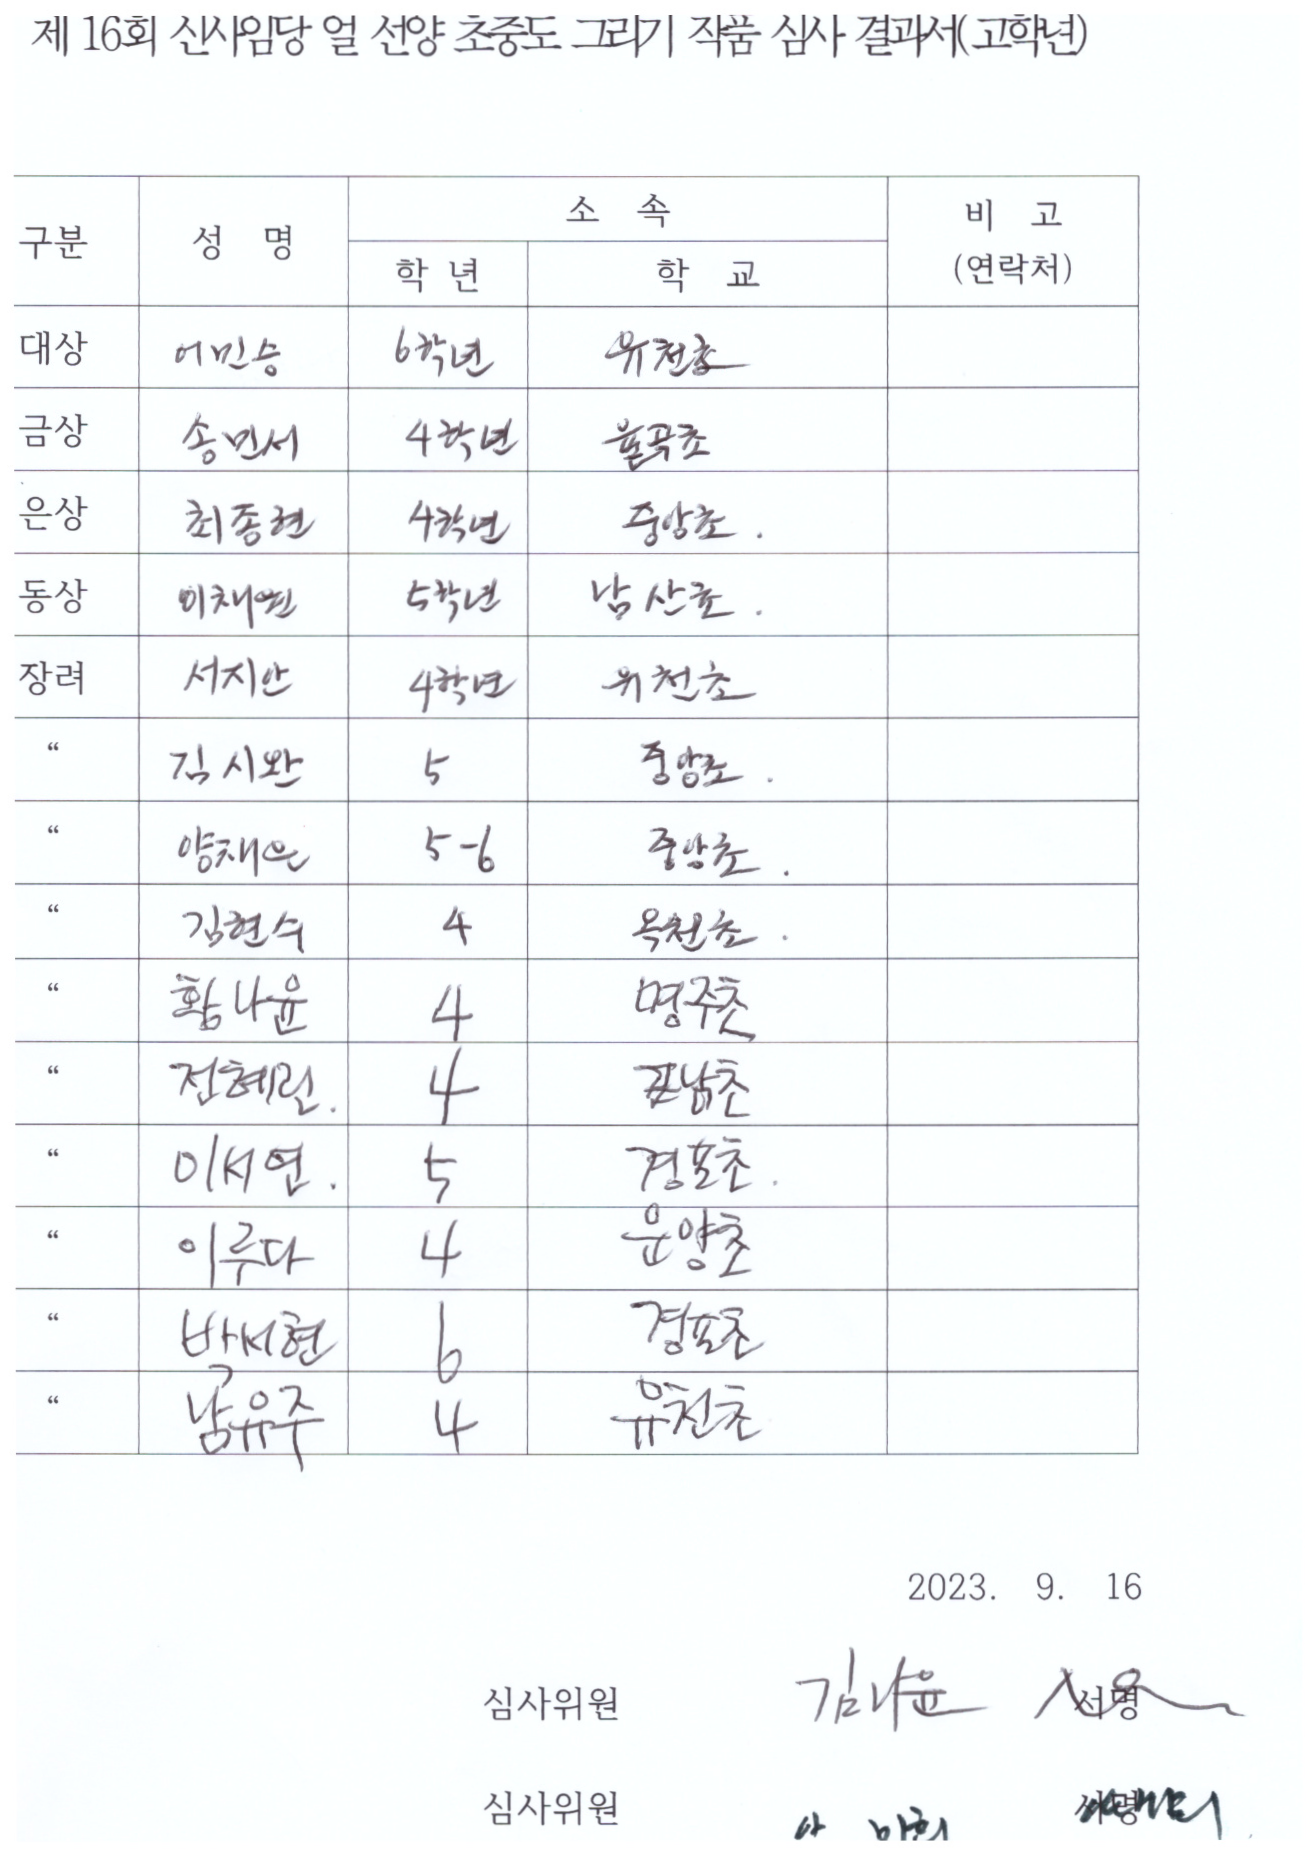 제 16회 신사임당 얼 선양 초중도 그리기 작품 심사 결과서(고학년)
구분 성 명 소 속 비 고
(연락처)
학 년 학 교
대상 어민승 6학년 유천초
금상 송민서 4학년 율곡초
은상 최종현 4학년 중앙초 .
동상 이채연 5학년 남산초 .
장려 서지안 4학년 유천초
“ 김시완 5 중앙초 .
“ 양채은 5-6 중앙초 .
“ 김현수 4 옥천초 .
“ 황나윤 4 명주초
“ 전혜린. 4 포남초
“ 이서연. 5 경포초.
“ 이루다 4 운양초
“ 박서현 6 경포초
“ 남유주 4 유천초
2023. 9. 16
심사위원 김나윤 서명
심사위원 서명